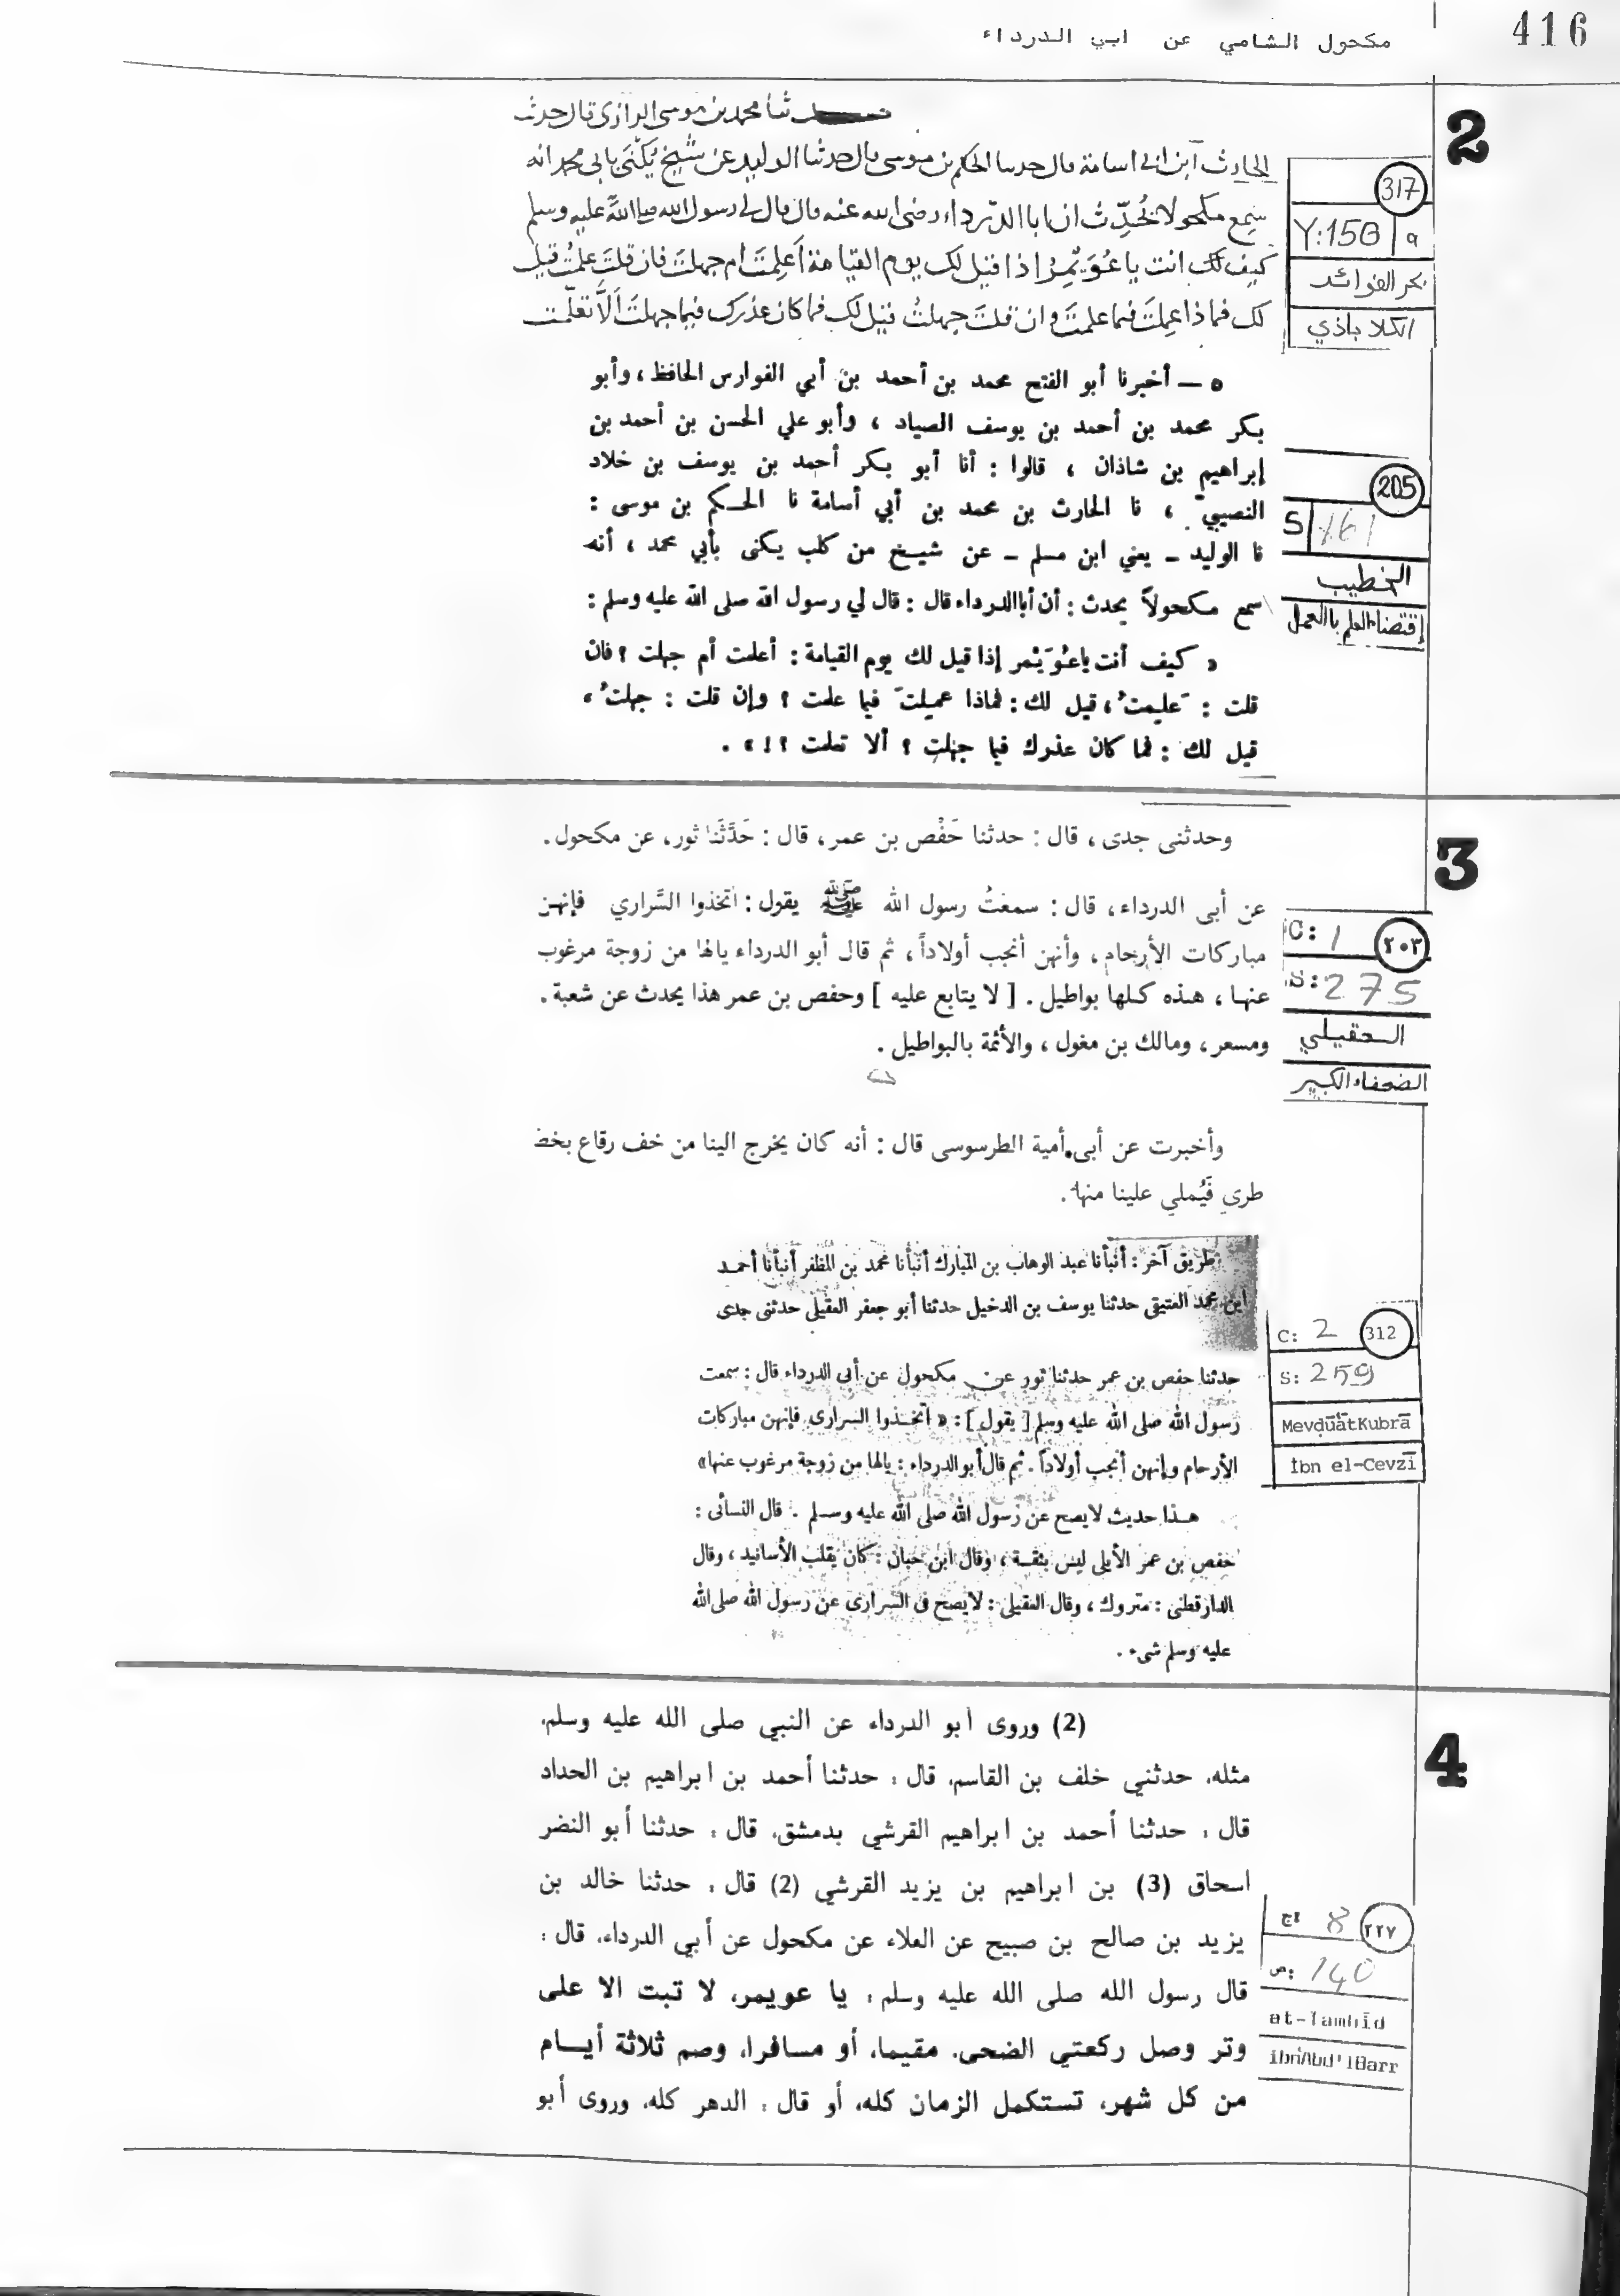 416
مكحول الشامي عن ابي الدرداء
2
ثنا محمد بن موسى الرازى قال حدث
الحارث ابن ابى اسامة قال حدثنا الحكم بن موسى قال حدثنا الوليد عن شيخ يُكْنَى بابى محمد انه
سَمِع مكحولا يُحَدِّث ان ابا الدّرداء رضى الله عنه قال قال لى رسول الله صلى اللَّه عليه وسلم
كيف لك انت يا عُوَيْمِرُ اذا قيل لك يوم القيامة اَعلِمتَ ام جهلتَ فان قلتَ علمتُ قيل
لك فماذا عملتَ فيما علمتَ وان قلتَ جهلتُ قيل لك فما كان عذرك فيما جهلتَ اَلَّا تعلّمت
317
Y:150 | a
بحر الفوائد
الكلاباذي
٥ — أخبرنا أبو الفتح محمد بن أحمد بن أبي الفوارس الحافظ ، وأبو
بكر محمد بن أحمد بن يوسف الصياد ، وأبو علي الحسن بن أحمد بن
إبراهيم بن شاذان ، قالوا : أنا أبو بكر أحمد بن يوسف بن خلاد
النصيبيّ ، نا الحارث بن محمد بن أبي أسامة نا الحكم بن موسى :
نا الوليد – يعني ابن مسلم – عن شيخ من كلب يكنى بأبي محمد ، أنه
سمع مكحولاً يحدث : أن أبا الدرداء قال : قال لي رسول الله صلى الله عليه وسلم :
« كيف أنت يا عُوَيْمر إذا قيل لك يوم القيامة : أعلمت أم جهلت ؟ فان
قلت : عَلِمتُ ، قيل لك : فماذا عمِلتَ فيما علمت ؟ وإن قلت : جهلتُ ،
قيل لك : فما كان عذرك فيما جهلت ؟ ألا تعلمت ؟ ! » .
205
S | 161
الخطيب
إقتضاء العلم بالعمل
3
وحدثنى جدى ، قال : حدثنا حَفْص بن عمر ، قال : حَدَّثَنا ثور ، عن مكحول .
عن أبى الدرداء ، قال : سمعتُ رسول الله ﷺ يقول : اتخذوا السَّراري فإنهن
مباركات الأرحام ، وأنهن أنجب أولاداً ، ثم قال أبو الدرداء يالها من زوجة مرغوب
عنها ، هذه كلها بواطيل . [ لا يتابع عليه ] وحفص بن عمر هذا يحدث عن شعبة .
ومسعر ، ومالك بن مغول ، والأئمة بالبواطيل .
وأخبرت عن أبى أمية الطرسوسى قال : أنه كان يخرج الينا من خف رقاع بخط
طري فَيُملي علينا منها .
C: 1 ٢٠٣
S: 275
العقيلي
الضعفاء الكبير
طريق آخر : أنبأنا عبد الوهاب بن المبارك أنبأنا محمد بن المظفر أنبأنا أحمد
ابن محمد العتيقى حدثنا يوسف بن الدخيل حدثنا أبو جعفر العقيلى حدثنى جدى
حدثنا حفص بن عمر حدثنا ثور عن مكحول عن أبى الدرداء قال : سمعت
رسول الله صلى الله عليه وسلم [ يقول ] : « اتخذوا السرارى فإنهن مباركات
الأرحام وإنهن أنجب أولاداً . ثم قال أبو الدرداء : يالها من زوجة مرغوب عنها »
هذا حديث لا يصح عن رسول الله صلى الله عليه وسلم . قال النسائى :
حفص بن عمر الأيلى ليس بثقة ، وقال ابن حبان : كان يقلب الأسانيد ، وقال
الدارقطنى : متروك ، وقال العقيلى : لا يصح فى السرارى عن رسول الله صلى الله
عليه وسلم شىء .
C: 2 312
S: 259
MevḍūātKubrā
İbn el-Cevzī
4
(2) وروى أبو الدرداء عن النبي صلى الله عليه وسلم.
مثله. حدثني خلف بن القاسم. قال : حدثنا أحمد بن ابراهيم بن الحداد
قال : حدثنا أحمد بن ابراهيم القرشي بدمشق. قال : حدثنا أبو النضر
اسحاق (3) بن ابراهيم بن يزيد القرشي (2) قال : حدثنا خالد بن
يزيد بن صالح بن صبيح عن العلاء عن مكحول عن أبي الدرداء. قال :
قال رسول الله صلى الله عليه وسلم : يا عويمر، لا تبت الا على
وتر وصل ركعتي الضحى. مقيما، أو مسافرا، وصم ثلاثة أيام
من كل شهر، تستكمل الزمان كله، أو قال : الدهر كله، وروى أبو
ج: 8 ٢٢٧
ص: 140
at-Tamhīd
ibn'Abd'lBarr